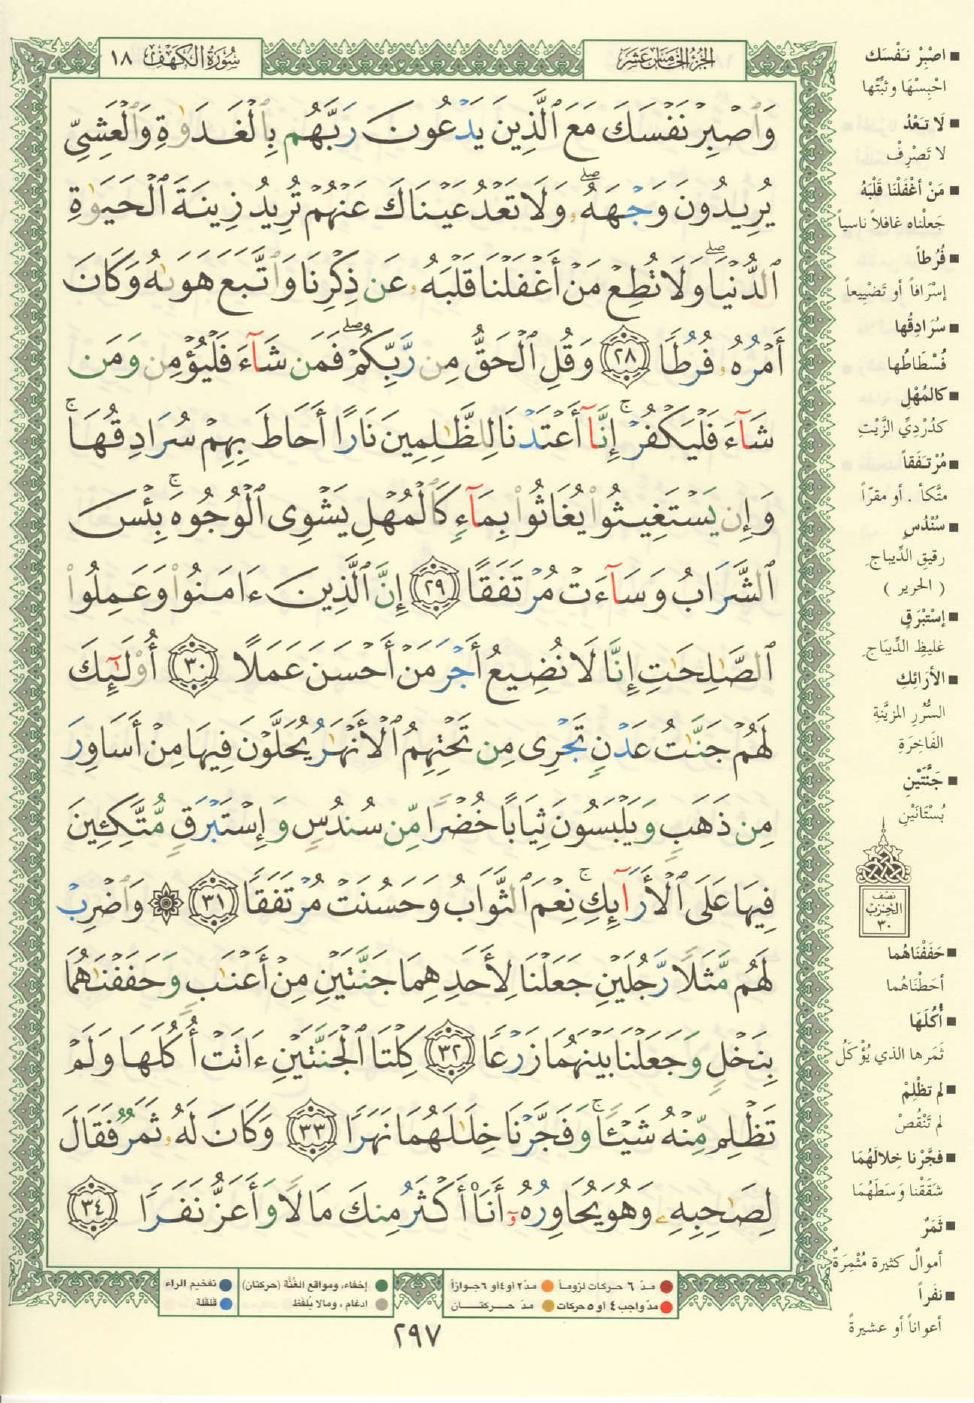 سُورَةُ الكَهْفِ ١٨
الجُزْءُ الخَامِسَ عَشَرَ
وَٱصْبِرْ نَفْسَكَ مَعَ ٱلَّذِينَ يَدْعُونَ رَبَّهُم بِٱلْغَدَوٰةِ وَٱلْعَشِىِّ
يُرِيدُونَ وَجْهَهُۥۖ وَلَا تَعْدُ عَيْنَاكَ عَنْهُمْ تُرِيدُ زِينَةَ ٱلْحَيَوٰةِ
ٱلدُّنْيَاۖ وَلَا تُطِعْ مَنْ أَغْفَلْنَا قَلْبَهُۥ عَن ذِكْرِنَا وَٱتَّبَعَ هَوَىٰهُ وَكَانَ
أَمْرُهُۥ فُرُطًا ﴿٢٨﴾ وَقُلِ ٱلْحَقُّ مِن رَّبِّكُمْۖ فَمَن شَآءَ فَلْيُؤْمِن وَمَن
شَآءَ فَلْيَكْفُرْۚ إِنَّآ أَعْتَدْنَا لِلظَّٰلِمِينَ نَارًا أَحَاطَ بِهِمْ سُرَادِقُهَاۚ
وَإِن يَسْتَغِيثُوا۟ يُغَاثُوا۟ بِمَآءٍ كَٱلْمُهْلِ يَشْوِى ٱلْوُجُوهَۚ بِئْسَ
ٱلشَّرَابُ وَسَآءَتْ مُرْتَفَقًا ﴿٢٩﴾ إِنَّ ٱلَّذِينَ ءَامَنُوا۟ وَعَمِلُوا۟
ٱلصَّٰلِحَٰتِ إِنَّا لَا نُضِيعُ أَجْرَ مَنْ أَحْسَنَ عَمَلًا ﴿٣٠﴾ أُو۟لَٰٓئِكَ
لَهُمْ جَنَّٰتُ عَدْنٍ تَجْرِى مِن تَحْتِهِمُ ٱلْأَنْهَٰرُ يُحَلَّوْنَ فِيهَا مِنْ أَسَاوِرَ
مِن ذَهَبٍ وَيَلْبَسُونَ ثِيَابًا خُضْرًا مِّن سُندُسٍ وَإِسْتَبْرَقٍ مُّتَّكِـِٔينَ
فِيهَا عَلَى ٱلْأَرَآئِكِۚ نِعْمَ ٱلثَّوَابُ وَحَسُنَتْ مُرْتَفَقًا ﴿٣١﴾ ۞ وَٱضْرِبْ
لَهُم مَّثَلًا رَّجُلَيْنِ جَعَلْنَا لِأَحَدِهِمَا جَنَّتَيْنِ مِنْ أَعْنَٰبٍ وَحَفَفْنَٰهُمَا
بِنَخْلٍ وَجَعَلْنَا بَيْنَهُمَا زَرْعًا ﴿٣٢﴾ كِلْتَا ٱلْجَنَّتَيْنِ ءَاتَتْ أُكُلَهَا وَلَمْ
تَظْلِم مِّنْهُ شَيْـًٔاۚ وَفَجَّرْنَا خِلَٰلَهُمَا نَهَرًا ﴿٣٣﴾ وَكَانَ لَهُۥ ثَمَرٌ فَقَالَ
لِصَٰحِبِهِۦ وَهُوَ يُحَاوِرُهُۥٓ أَنَا۠ أَكْثَرُ مِنكَ مَالًا وَأَعَزُّ نَفَرًا ﴿٣٤﴾
■ اصْبِرْ نَفْسَكَ
احْبِسْهَا وثبِّتْها
■ لَا تَعْدُ
لا تَصْرِفْ
■ مَنْ أغْفَلْنَا قَلْبَهُ
جَعلْناه غافلاً ناسياً
■ فُرُطاً
إسْرَافاً أو تَضْييعاً
■ سُرَادِقُها
فُسْطَاطُها
■ كالمُهْلِ
كدُرْدِيِّ الزَّيْتِ
■ مُرْتَفَقاً
متَّكأ . أو مقرّاً
■ سُنْدُسٍ
رقيقِ الدِّيباجِ
( الحرير )
■ إسْتَبْرَقٍ
غليظِ الدِّيبَاجِ
■ الأرَائِكِ
السُّرُرِ المزيَّنَةِ
الفَاخِرَةِ
■ جَنَّتَيْنِ
بُسْتَانَيْنِ
نصف
الحِزْبْ
٣٠
■ حَفَفْنَاهُما
أحَطْنَاهُما
■ أُكُلَهَا
ثَمَرها الذي يُؤْكَلُ
■ لم تظْلِمْ
لم تَنْقُصْ
■ فجَّرْنا خِلالَهُمَا
شَقَقْنا وَسَطَهُمَا
■ ثَمَرٌ
أموالٌ كثيرة مُثْمِرَةٌ
■ نفَراً
أعواناً أو عشيرةً
مدّ ٦ حركات لزوماً مدّ ٢ أو ٤ أو ٦ جوازاً
مدّ واجب ٤ أو ٥ حركات مدّ حركتان
إخفاء، ومواقع الغُنَّة (حركتان) تفخيم الراء
ادغام ، ومالا يُلفَظ قلقلة
٢٩٧